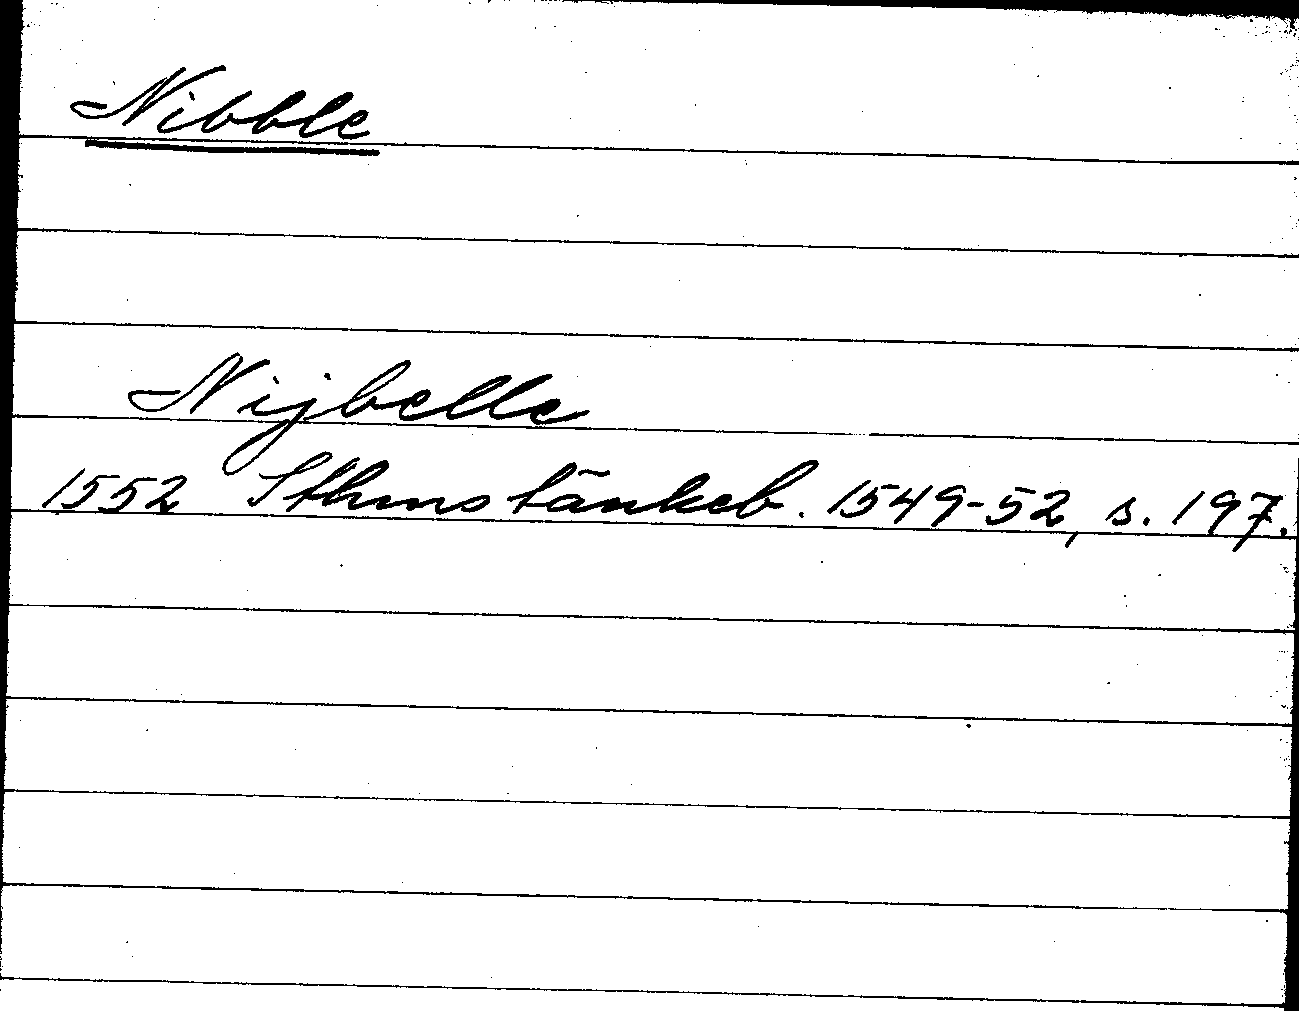 Nibble
Nijbelle
1552 Sthms tänkeb. 1549-52, s. 197.